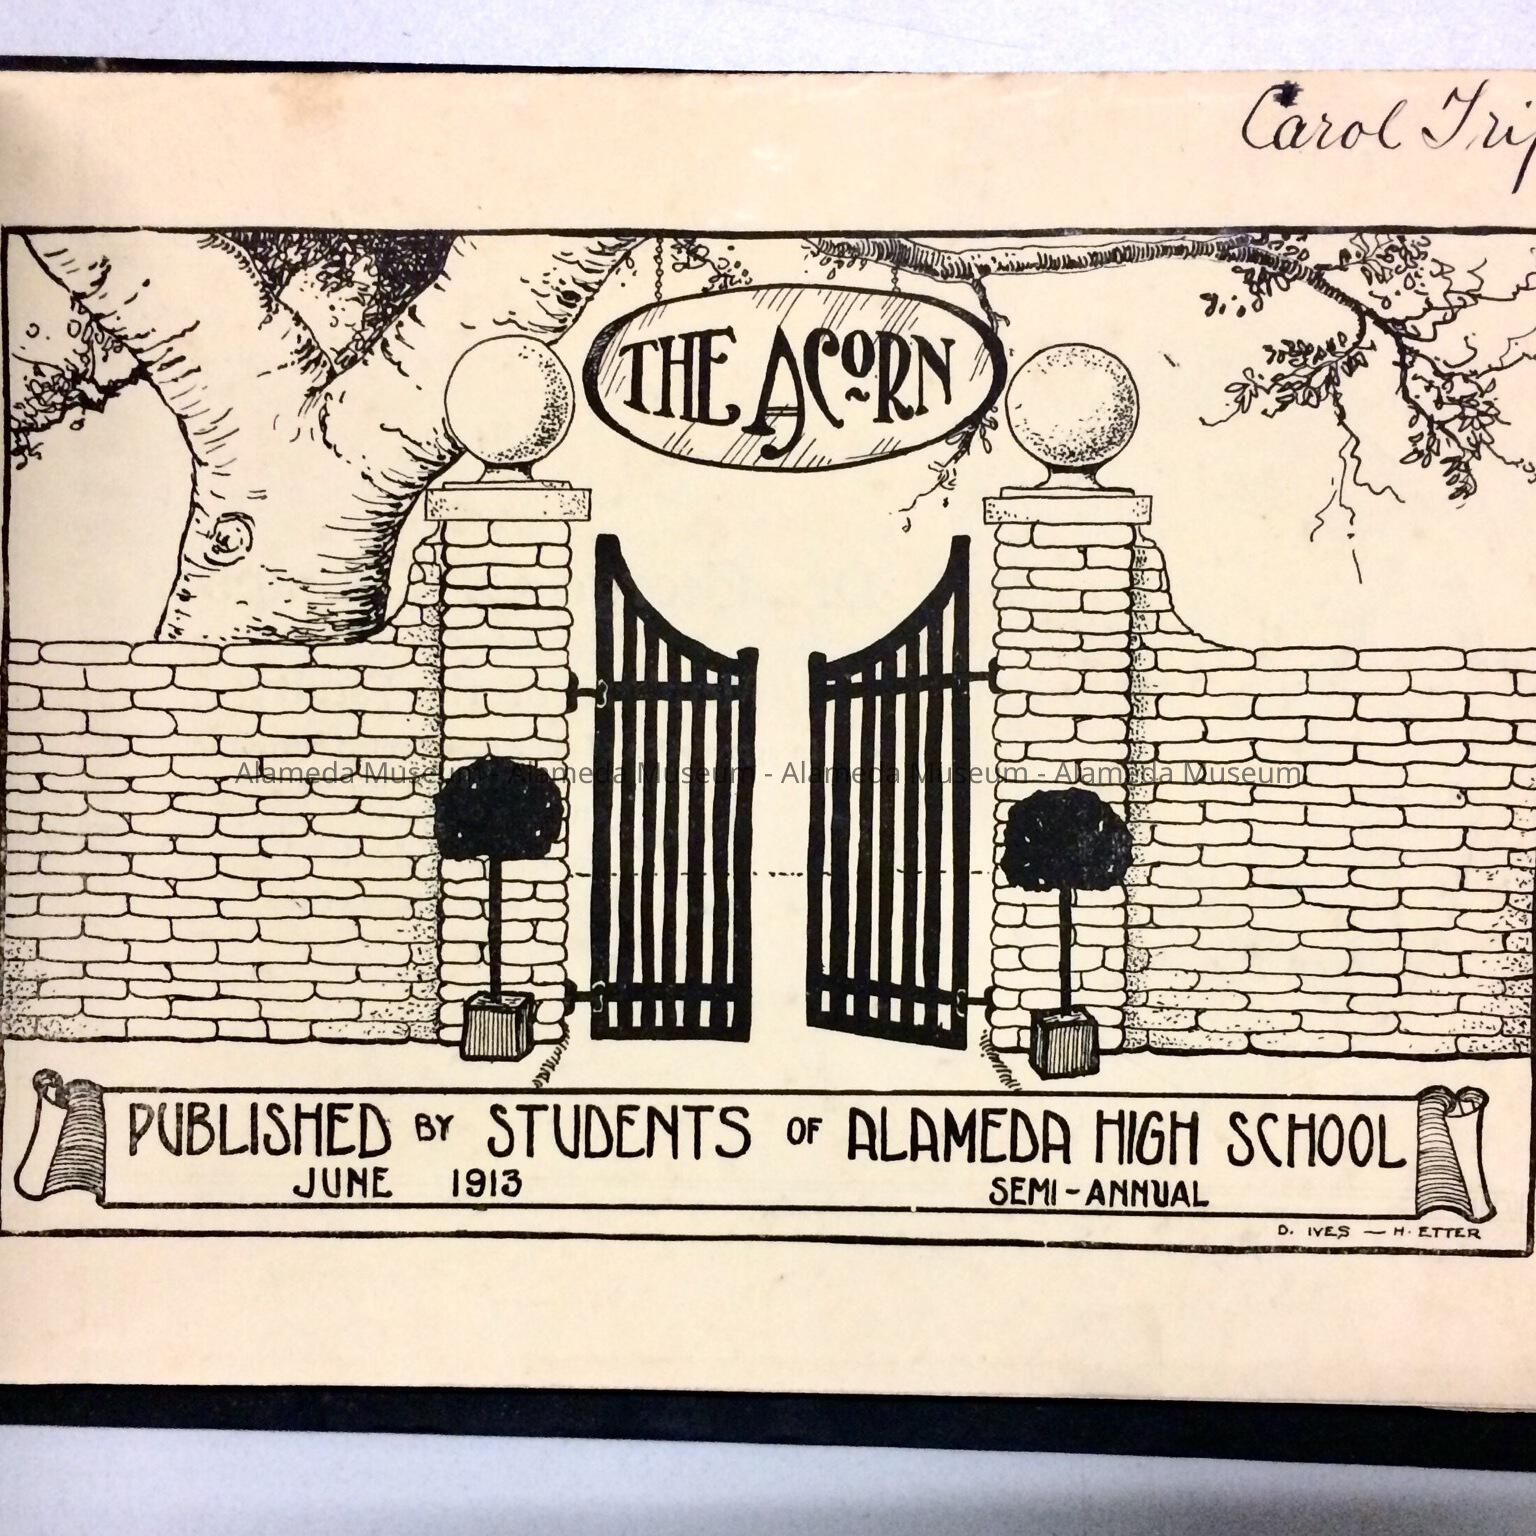 Carol
THE ACORN
Alameda Museum - Alameda Museum - Alameda Museum - Alameda Museum
PUBLISHED BY STUDENTS OF ALAMEDA HIGH SCHOOL
JUNE 1913 SEMI-ANNUAL
D. IVES — H. ETTER